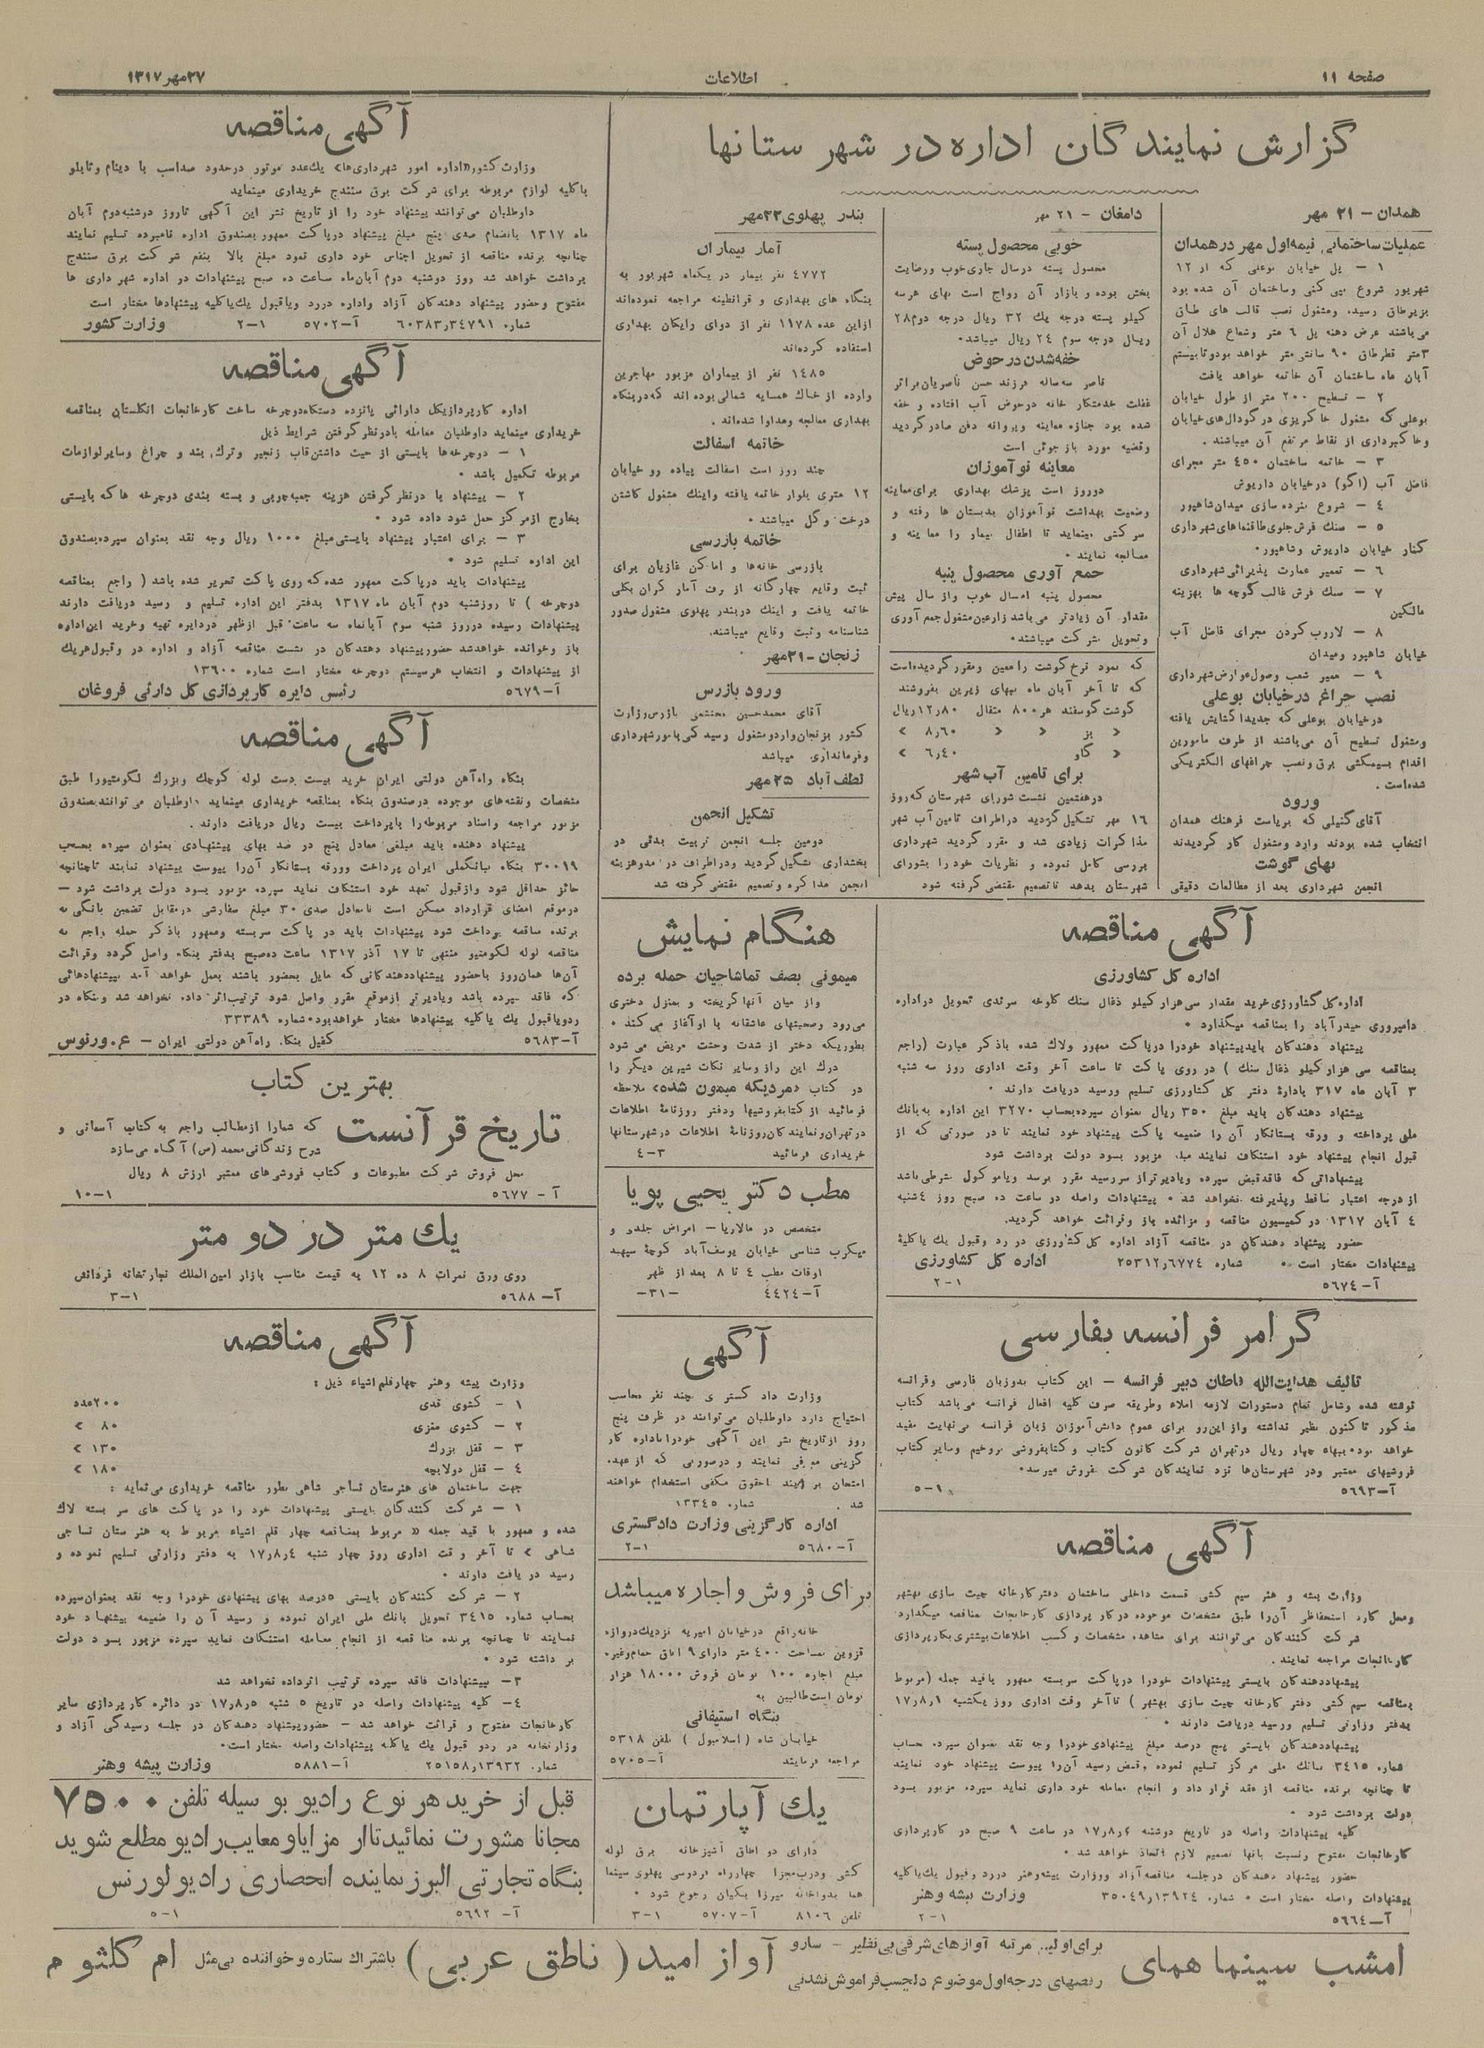 صفحه ۱۱
اطلاعات
۲۷ مهر ۱۳۱۷
گزارش نمایندگان اداره در شهرستانها
همدان - ۲۱ مهر
عملیات ساختمانی نیمه اول مهر در همدان
۱ - پل خیابان بوعلی که از ۱۲
شهریور شروع بپی کنی وساختمان آن شده بود
بزیرطاق رسیده ومشغول نصب قالب های طاق
می باشند عرض دهنه پل ۶ متر وشعاع هلال آن
۳متر قطرطاق ۹۰ سانتی متر خواهد بودوتابیستم
آبان ماه ساختمان آن خاتمه خواهد یافت
۲ - تسطیح ۲۰۰ متر از طول خیابان
بوعلی که مشغول خاکریزی درگودال‌های خیابان
وخاکبرداری از نقاط مرتفع آن میباشند .
۳ - خاتمه ساختمان ۴۵۰ متر مجرای
فاضل آب (اگو) درخیابان داریوش
۴ - شروع بنرده سازی میدان شاهپور
۵ - سنك فرش جلوی طاقنماهای شهرداری
کنار خیابان داریوش وشاهپور.
۶ - تعمیر عمارت پذیرائی شهرداری
۷ - سنك فرش غالب کوچه ها بهزینه
مالکین
۸ - لاروب کردن مجرای فاضل آب
خیابان شاهپور ومیدان
۹ - تعمیر شعب وصول عوارض شهرداری
نصب چراغ درخیابان بوعلی
درخیابان بوعلی که جدیدا گشایش یافته
ومشغول تسطیح آن می‌باشند از طرف مامورین
اقدام بسیمکشی برق ونصب چراغهای الکتریکی
شده‌است .
ورود
آقای گنیلی که بریاست فرهنك همدان
انتخاب شده بودند وارد ومشغول کار گردیدند
بهای گوشت
انجمن شهرداری بعد از مطالعات دقیقی
دامغان - ۲۱ مهر
خوبی محصول پسته
محصول پسته درسال جاری خوب ورضایت
بخش بوده و بازار آن رواج است بهای هرسه
کیلو پسته درجه یك ۳۲ ریال درجه دوم ۲۸
ریال درجه سوم ۲۴ ریال میباشد.
خفه‌شدن در حوض
ناصر سه‌ساله فرزند حسن ناصریان براثر
غفلت خدمتکار خانه درحوض آب افتاده و خفه
شده بود جنازه معاینه وپروانه دفن صادر گردید
وقضیه مورد بازجوئی است
معاینه نو آموزان
دوروز است پزشك بهداری برای معاینه
وضعیت بهداشت نوآموزان بدبستان ها رفته و
سرکشی مینماید تا اطفال بیمار را معاینه و
معالجه نمایند .
جمع آوری محصول پنبه
محصول پنبه امسال خوب واز سال پیش
مقدار آن زیادتر می باشد زارعین مشغول جمع آوری
وتحویل بشرکت میباشند.
که نمود نرخ گوشت را معین ومقرر گردیده‌است
که تا آخر آبان ماه ببهای زیرین بفروشند
گوشت گوسفند هر ۸۰۰ مثقال ۱۲٫۸۰ ریال
« بز « « ۸٫۶۰ »
« گاو ۶٫۴۰ »
برای تامین آب شهر
درهفتمین نشست شورای شهرستان که روز
۱۶ مهر تشکیل گردید دراطراف تامین آب شهر
مذاکرات زیادی شد و مقرر گردید شهرداری
بررسی کامل نموده و نظریات خود را بشورای
شهرستان بدهد تا تصمیم مقتضی گرفته شود
بندر پهلوی ۲۲ مهر
آمار بیماران
۴۷۷۲ نفر بیمار در یکماه شهریور به
بنگاه های بهداری و قرانطینه مراجعه نموده‌اند
ازاین عده ۱۱۷۸ نفر از دوای رایگان بهداری
استفاده کرده‌اند
۱۴۸۵ نفر از بیماران مزبور مهاجرین
وارده از خاك همسایه شمالی بوده اند که دربنگاه
بهداری معالجه ومداوا شده‌اند .
خاتمه اسفالت
چند روز است اسفالت پیاده رو خیابان
۱۲ متری بلوار خاتمه یافته واینك مشغول کاشتن
درخت وگل میباشند .
خاتمه بازرسی
بازرسی خانه‌ها و اماکن غازیان برای
ثبت وقایع چهارگانه از طرف آمار گران بکلی
خاتمه یافت و اینك دربندر پهلوی مشغول صدور
شناسنامه وثبت وقایع میباشند.
زنجان - ۲۱ مهر
ورود بازرس
آقای محمدحسین محتشمی بازرس وزارت
کشور بزنجان وارد ومشغول رسیدگی بامور شهرداری
وفرمانداری میباشد
لطف آباد ۲۵ مهر
تشکیل انجمن
دومین جلسه انجمن تربیت بدنی در
بخشداری تشکیل گردید ودراطراف در آمد وهزینه
انجمن مذاکره وتصمیم مقتضی گرفته شد
آگهی مناقصه
وزارت کشور «اداره امور شهرداری‌ها» یك‌عدد موتور درحدود صداسب با دینام وتابلو
باکلیه لوازم مربوطه برای شرکت برق سنندج خریداری مینماید
داوطلبان می‌توانند پیشنهاد خود را از تاریخ نشر این آگهی تاروز دوشنبه دوم آبان
ماه ۱۳۱۷ بانضمام صدی پنج مبلغ پیشنهاد درپاکت ممهور بصندوق اداره نامبرده تسلیم نمایند
چنانچه برنده مناقصه از تحویل اجناس خود داری نمود مبلغ بالا بنفع شرکت برق سنندج
برداشت خواهد شد روز دوشنبه دوم آبان‌ماه ساعت ده صبح پیشنهادات در اداره شهرداری ها
مفتوح وحضور پیشنهاد دهندگان آزاد واداره دررد ویاقبول یك یاکلیه پیشنهادها مختار است
شماره ۶۰۳۸۳٫۳۴۷۹۱ آ-۵۷۰۲ ۲-۱ وزارت کشور
آگهی مناقصه
اداره کارپردازی‌کل دارائی پانزده دستگاه دوچرخه ساخت کارخانجات انگلستان بمناقصه
خریداری مینماید داوطلبان معامله بادرنظر گرفتن شرایط ذیل
۱ - دوچرخه‌ها بایستی از حیث داشتن قاب زنجیر وترك بند و چراغ وسایر لوازمات
مربوطه تکمیل باشد .
۲ - پیشنهاد با درنظر گرفتن هزینه جعبه‌چوبی و بسته بندی دوچرخه هاکه بایستی
بخارج ازمرکز حمل شود داده شود .
۳ - برای اعتبار پیشنهاد بایستی مبلغ ۱۰۰۰ ریال وجه نقد بعنوان سپرده بصندوق
این اداره تسلیم شود .
پیشنهادات باید درپاکت ممهور شده که روی پاکت تحریر شده باشد ( راجع بمناقصه
دوچرخه ) تا روزشنبه دوم آبان ماه ۱۳۱۷ بدفتر این اداره تسلیم و رسید دریافت دارند
پیشنهادات رسیده درروز شنبه سوم آبانماه سه ساعت قبل ازظهر دردایره تهیه وخرید این اداره
باز وخوانده خواهدشد حضور پیشنهاد دهندگان در نشست مناقصه آزاد و اداره در رد وقبول هریك
از پیشنهادات و انتخاب هرسیستم دوچرخه مختار است شماره ۱۳۶۰۰
آ-۵۶۷۹ رئیس دایره کارپردازی کل دارئی فروغان
آگهی مناقصه
بنگاه راه‌آهن دولتی ایران خرید بیست دست لوله کوچك وبزرك لکوموتیورا طبق
مشخصات ونقشه‌های موجوده درصندوق بنگاه بمناقصه خریداری مینماید داوطلبان می‌توانند بصندوق
مزبور مراجعه واسناد مربوطه را باپرداخت بیست ریال دریافت دارند .
پیشنهاد دهنده باید مبلغی معادل پنج در صد بهای پیشنهادی بعنوان سپرده بحساب
۳۰۰۱۹ بنگاه ببانك‌ملی ایران پرداخت وورقه بستانکار آن‌را پیوست پیشنهاد نمایند تاچنانچه
حائز حداقل شود وازقبول تعهد خود استنکاف نماید سپرده مزبور بسود دولت برداشت شود -
درموقع امضای قرارداد ممکن است تامعادل صدی ۳۰ مبلغ سفارشی درمقابل تضمین بانکی به
برنده مناقصه پرداخت شود پیشنهادات باید در پاکت سربسته وممهور باذکر جمله راجع به
مناقصه لوله لکوموتیو منتهی تا ۱۷ آذر ۱۳۱۷ ساعت ده‌صبح بدفتر بنگاه واصل گردد وقرائت
آن‌ها همان‌روز باحضور پیشنهاددهندگانی که مایل بحضور باشند بعمل خواهد آمد پیشنهادهائی
که فاقد سپرده باشد ویادیرتر ازموقع مقرر واصل شود ترتیب‌اثر داده نخواهد شد وبنگاه در
ردویاقبول یك یاکلیه پیشنهادها مختار خواهدبود. شماره ۳۳۳۸۹
آ-۵۶۸۳ کفیل بنگاه راه‌آهن دولتی ایران - ع. ورنوس
بهترین کتاب
تاریخ قرآنست
که شمارا ازمطالب راجع به کتاب آسمانی و
شرح زندگانی محمد (ص) آگاه می‌سازد
محل فروش شرکت مطبوعات و کتاب فروشی‌های معتبر ارزش ۸ ریال
آ - ۵۶۷۷ ۱۰-۱
یك متر در دو متر
روی ورق نمرات ۸ ده ۱۲ به قیمت مناسب بازار امین‌الملك تجارتخانه فردانش
آ-۵۶۸۸ ۳-۱
آگهی مناقصه
وزارت پیشه وهنر چهارقلم اشیاء ذیل :
۱ - کشوی قدی ۲۰۰عدد
۲ - کشوی مغزی ۸۰ »
۳ - قفل بزرك ۱۳۰ »
۴ - قفل دولابچه ۱۸۰ »
جهت ساختمان های هنرستان نساجی شاهی بطور مناقصه خریداری می‌نماید :
۱ - شرکت کنندگان بایستی پیشنهادات خود را در پاکت های سر بسته لاك
شده و ممهور با قید جمله « مربوط بمناقصه چهار قلم اشیاء مربوط به هنرستان نساجی
شاهی » تا آخر وقت اداری روز چهار شنبه ۱۷٫۸٫۴ به دفتر وزارتی تسلیم نموده و
رسید دریافت دارند .
۲ - شرکت کنندگان بایستی ۵درصد بهای پیشنهادی خودرا وجه نقد بعنوان‌سپرده
بحساب شماره ۳۴۱۵ تحویل بانك ملی ایران نموده و رسید آن را ضمیمه پیشنهاد خود
نمایند تا چنانچه برنده مناقصه از انجام معامله استنکاف نماید سپرده مزبور بسود دولت
برداشته شود .
۳- پیشنهادات فاقد سپرده ترتیب اثرداده نخواهد شد
۴- کلیه پیشنهادات واصله در تاریخ ۵ شنبه ۱۷٫۸٫۵ در دائره کارپردازی سایر
کارخانجات مفتوح و قرائت خواهد شد - حضورپیشنهاد دهندگان در جلسه رسیدگی آزاد و
وزارتخانه در ردو قبول یك یاکلیه پیشنهادات واصله مختار است.
شماره ۲۵۱۵۸٫۱۳۹۳۲ آ-۵۸۸۱ وزارت پیشه وهنر
قبل از خرید هر نوع رادیو بوسیله تلفن ۷۵۰۰
مجانا مشورت نمائید تا از مزایا و معایب رادیو مطلع شوید
بنگاه تجارتی البرز نماینده انحصاری رادیو لورنس
آ- ۵۶۹۲ ۵-۱
هنگام نمایش
میمونی بصف تماشاچیان حمله برده
واز میان آنها گریخته و بمنزل دختری
می‌رود وصحبتهای عاشقانه با او آغاز می کند .
بطوریکه دختر از شدت وحشت مریض می شود
درك این راز وسایر نکات شیرین دیگر را
در کتاب «مردیکه میمون شده» ملاحظه
فرمائید از کتابفروشیها ودفتر روزنامهٔ اطلاعات
درتهران ونمایندگان روزنامهٔ اطلاعات درشهرستانها
خریداری فرمائید ۴-۳
مطب دکتر یحیی پویا
متخصص در مالاریا - امراض جلدی و
میکرب شناسی خیابان یوسف‌آباد کوچهٔ سپهبد
اوقات مطب ۴ تا ۸ بعد از ظهر
آ-۴۴۲۴ -۳۱-
آگهی
وزارت دادگستری چند نفر محاسب
احتیاج دارد داوطلبان می‌توانند در ظرف پنج
روز ازتاریخ نشر این آگهی خودرا باداره کار
گزینی معرفی نمایند و درصورتی که از عهده
امتحان برآیند باحقوق مکفی استخدام خواهند
شد . شماره ۱۳۳۴۵
اداره کارگزینی وزارت دادگستری
آ-۵۶۸۰ ۲-۱
برای فروش و اجاره میباشد
خانه‌واقع درخیابان امیریه نزدیك دروازه
قزوین بمساحت ۴۰۰ متر دارای ۹ اطاق حمام وغیره
مبلغ اجاره ۱۰۰ تومان فروش ۱۸۰۰۰ هزار
تومان است طالبین به
بنگاه استیفانی
خیابان شاه (اسلامبول ) تلفن ۵۳۱۸
مراجعه فرمایند آ-۵۷۰۵
یك آپارتمان
دارای دو اطاق آشپزخانه برق لوله
کشی ودرب‌مجزا چهارراه فردوسی پهلوی سینما
هما بدواخانه میرزا یکیان رجوع شود .
تلفن ۸۱۰۶ آ-۵۷۰۷ ۳-۱
آگهی مناقصه
اداره کل کشاورزی
اداره کل کشاورزی خرید مقدار سی‌هزار کیلو ذغال سنك کلوخه سرندی تحویل دراداره
دامپروری حیدرآباد را بمناقصه میگذارد .
پیشنهاد دهندگان بایدپیشنهاد خودرا درپاکت ممهور ولاك شده باذکر عبارت (راجع
بمناقصه سی هزار کیلو ذغال سنك ) در روی پاکت تا ساعت آخر وقت اداری روز سه شنبه
۳ آبان ماه ۳۱۷ بادارهٔ دفتر کل کشاورزی تسلیم ورسید دریافت دارند .
پیشنهاد دهندگان باید مبلغ ۳۵۰ ریال بعنوان سپرده‌بحساب ۳۲۷۰ این اداره به‌بانك
ملی پرداخته و ورقه بستانکار آن را ضمیمه پاکت پیشنهاد خود نمایند تا در صورتی که از
قبول انجام پیشنهاد خود استنکاف نمایند مبلغ مزبور بسود دولت برداشت شود
پیشنهاداتی که فاقد قبض سپرده ویادیرتر از سررسید مقرر برسد ویاموکول بشرطی باشد
ازدرجه اعتبار ساقط وپذیرفته نخواهد شد . پیشنهادات واصله در ساعت ده صبح روز ۴شنبه
۴ آبان ۱۳۱۷ در کمیسیون مناقصه و مزائده باز وقرائت خواهد گردید.
حضور پیشنهاد دهندگان در مناقصه آزاد اداره کل کشاورزی در رد وقبول یك یاکلیهٔ
پیشنهادات مختار است . شماره ۲۵۳۱۲٫۶۷۷۴ اداره کل کشاورزی
آ-۵۶۷۴ ۲-۱
گرامر فرانسه بفارسی
تالیف هدایت‌الله ناطان دبیر فرانسه - این کتاب بدوزبان فارسی وفرانسه
نوشته شده وشامل تمام دستورات لازمه املاء وطریقه صرف کلیه افعال فرانسه می باشد کتاب
مذکور تاکنون نظیر نداشته وازاین‌رو برای عموم دانش‌آموزان زبان فرانسه بی‌نهایت مفید
خواهد بود. ببهاء چهار ریال درتهران شرکت کانون کتاب وکتابفروشی بروخیم وسایر کتاب
فروشیهای معتبر ودر شهرستان‌ها نزد نمایندگان شرکت بفروش میرسد.
آ-۵۶۹۳ ۵-۱
آگهی مناقصه
وزارت پیشه و هنر سیم کشی قسمت داخلی ساختمان دفتر کارخانه چیت سازی بهشهر
ومحل گارد استحفاظی آن‌را طبق مشخصات موجوده درکارپردازی کارخانجات بمناقصه میگذارد
شرکت کنندگان می‌توانند برای مشاهده مشخصات وکسب اطلاعات بیشتری بکارپردازی
کارخانجات مراجعه نمایند.
پیشنهاددهندگان بایستی پیشنهادات خودرا درپاکت سربسته ممهور باقید جمله (مربوط
بمناقصه سیم کشی دفتر کارخانه چیت سازی بهشهر ) تاآخر وقت اداری روز یکشنبه ۱۷٫۸٫۱
بدفتر وزارتی تسلیم ورسید دریافت دارند .
پیشنهاددهندگان بایستی پنج درصد مبلغ پیشنهادی خودرا وجه نقد بعنوان سپرده بحساب
شماره ۳۴۱۵ ببانك ملی مرکز تسلیم نموده وقبض رسید آن‌را پیوست پیشنهاد خود نمایند
تا چنانچه برنده مناقصه از عقد قرارداد و انجام معامله خود داری نماید سپرده مزبور بسود
دولت برداشت شود .
کلیه پیشنهادات واصله در تاریخ دوشنبه ۱۷٫۸٫۲ در ساعت ۹ صبح در کارپردازی
کارخانجات مفتوح ونسبت بانها تصمیم لازم اتخاذ خواهد شد .
حضور پیشنهاد دهندگان درجلسه مناقصه آزاد ووزارت پیشه‌وهنر دررد وقبول یك‌یاکلیه
پیشنهادات واصله مختار است . شماره ۳۵۰۴۹٫۱۳۹۲۴ وزارت پیشه وهنر
آ-۵۶۶۴ ۲-۱
امشب سینما همای
برای اولین مرتبه آوازهای شرقی بی‌نظیر - سارو
رقصهای درجه اول موضوع دلچسب فراموش نشدنی
آواز امید ( ناطق عربی ) باشتراك ستاره و خواننده بی‌مثل ام کلثوم